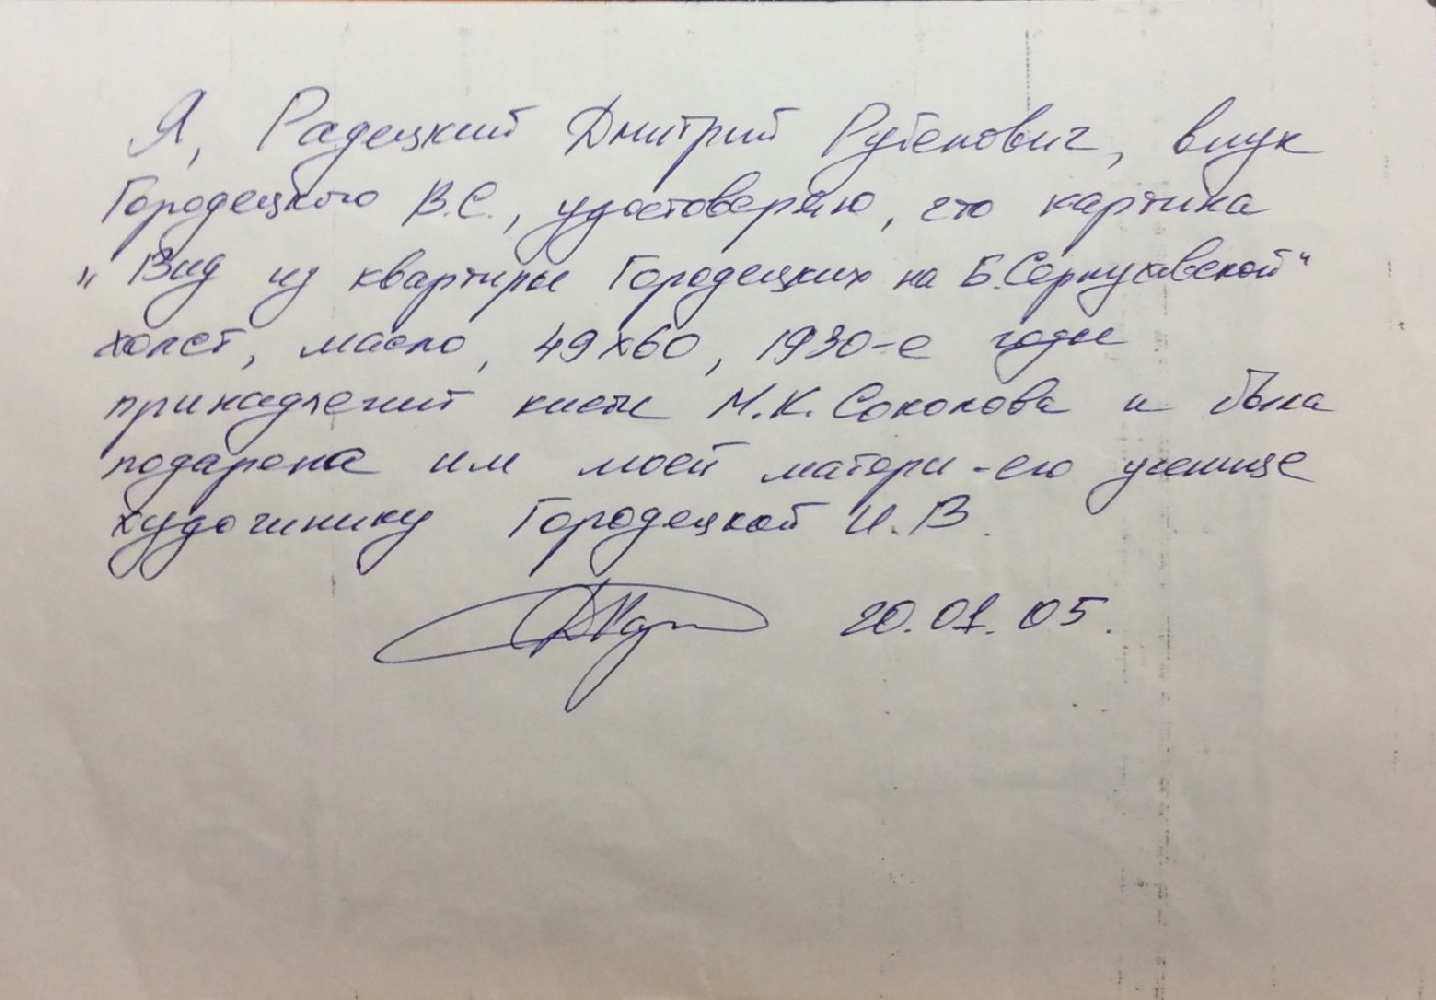 Я, Радецкий Дмитрий Рубенович, внук
Городецкого В.С., удостоверяю, что картина
„Вид из квартиры Городецких на Б.Серпуховской“
холст, масло, 49х60, 1930-е годы
принадлежит кисти М.К. Соколова и была
подарена им моей матери - его ученице
художнику Городецкой И.В.
20.01.05.